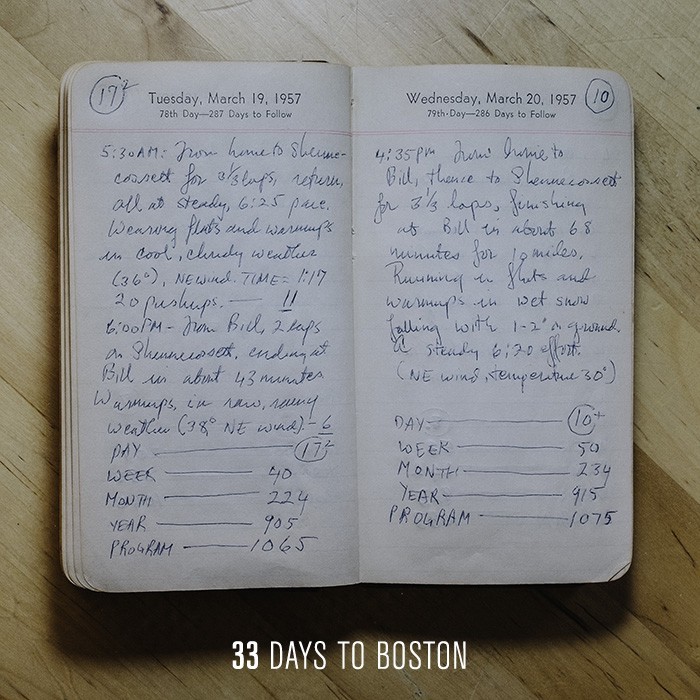 17²
Tuesday, March 19, 1957
78th Day—287 Days to Follow
5:30AM: From home to Shenne-
cossett for 3⅓ laps, return,
all at steady, 6:25 pace.
Wearing flats and warmups
in cool, cloudy weather
(36°), NE wind. TIME = 1:17
20 pushups. — 11
6:00PM – From Bill, 2 laps
on Shennecossett, ending at
Bill in about 43 minutes
Warmups, in raw, rainy
weather (38° NE wind). – 6
DAY — 17²
WEEK — 40
MONTH — 224
YEAR — 905
PROGRAM — 1065
Wednesday, March 20, 1957
10
79th Day—286 Days to Follow
4:35pm From home to
Bill, thence to Shennecossett
for 3⅓ laps, finishing
at Bill in about 68
minutes for 10 miles.
Running in flats and
warmups in wet snow
falling with 1-2" on ground.
A steady 6:20 effort.
(NE wind, temperature 30°)
DAY — 10+
WEEK — 50
MONTH — 234
YEAR — 915
PROGRAM — 1075
33 DAYS TO BOSTON